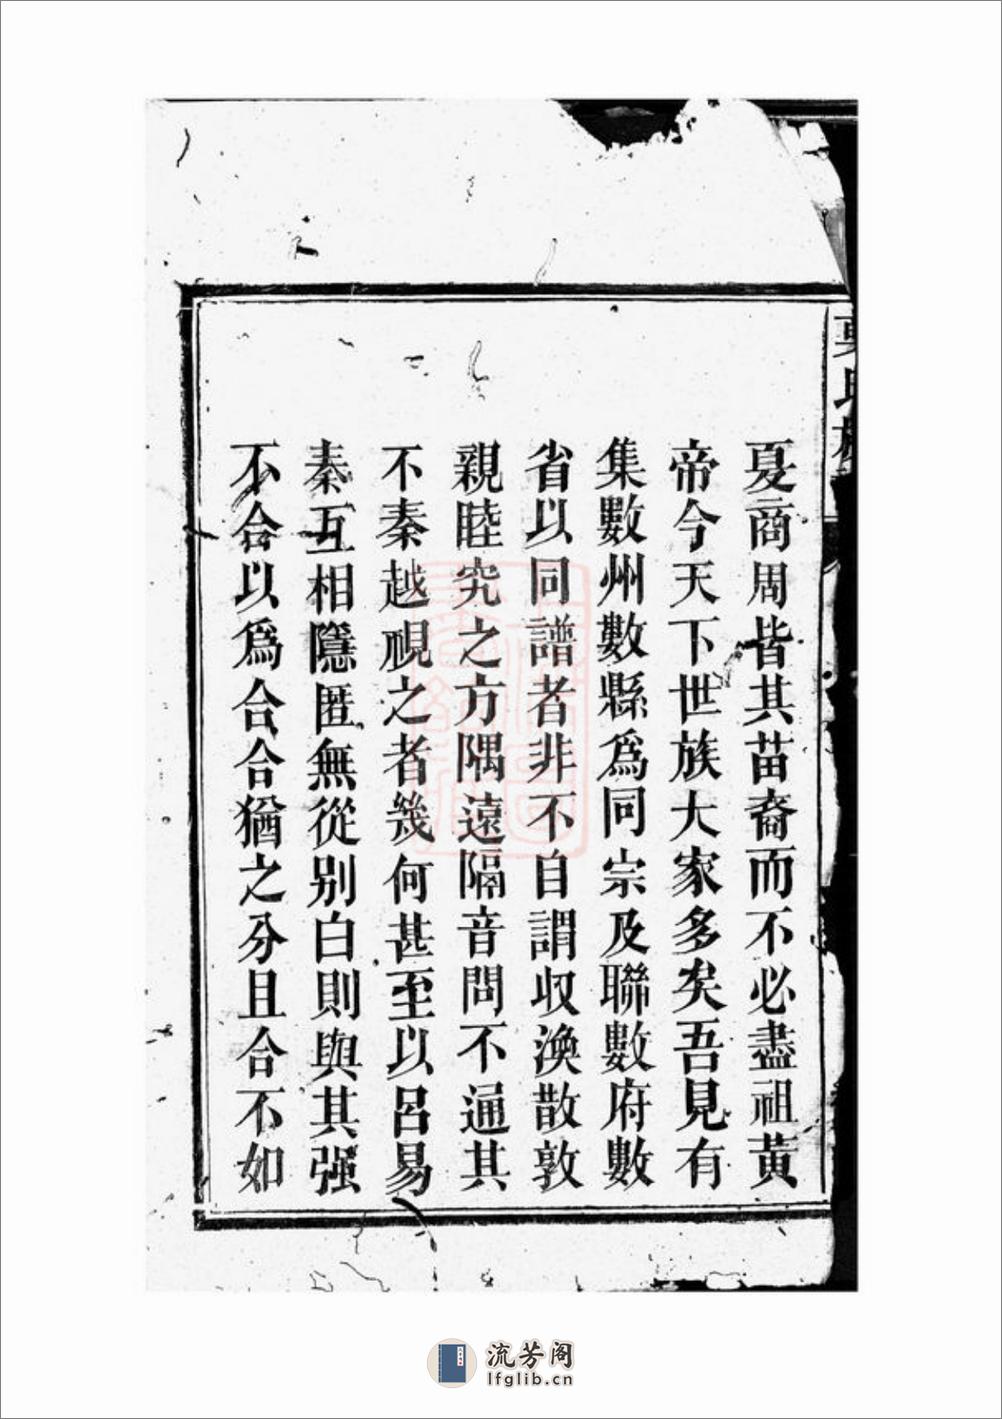 夏商周皆其苗裔而不必盡祖黃
帝今天下世族大家多矣吾見有
集數州數縣爲同宗及聯數府數
省以同譜者非不自謂収渙散敦
親睦究之方隅遠隔音問不通其
不秦越視之者幾何甚至以呂易
秦互相隱匿無從别白則與其强
不合以爲合合猶之分且合不如
流芳阁
lfglib.cn